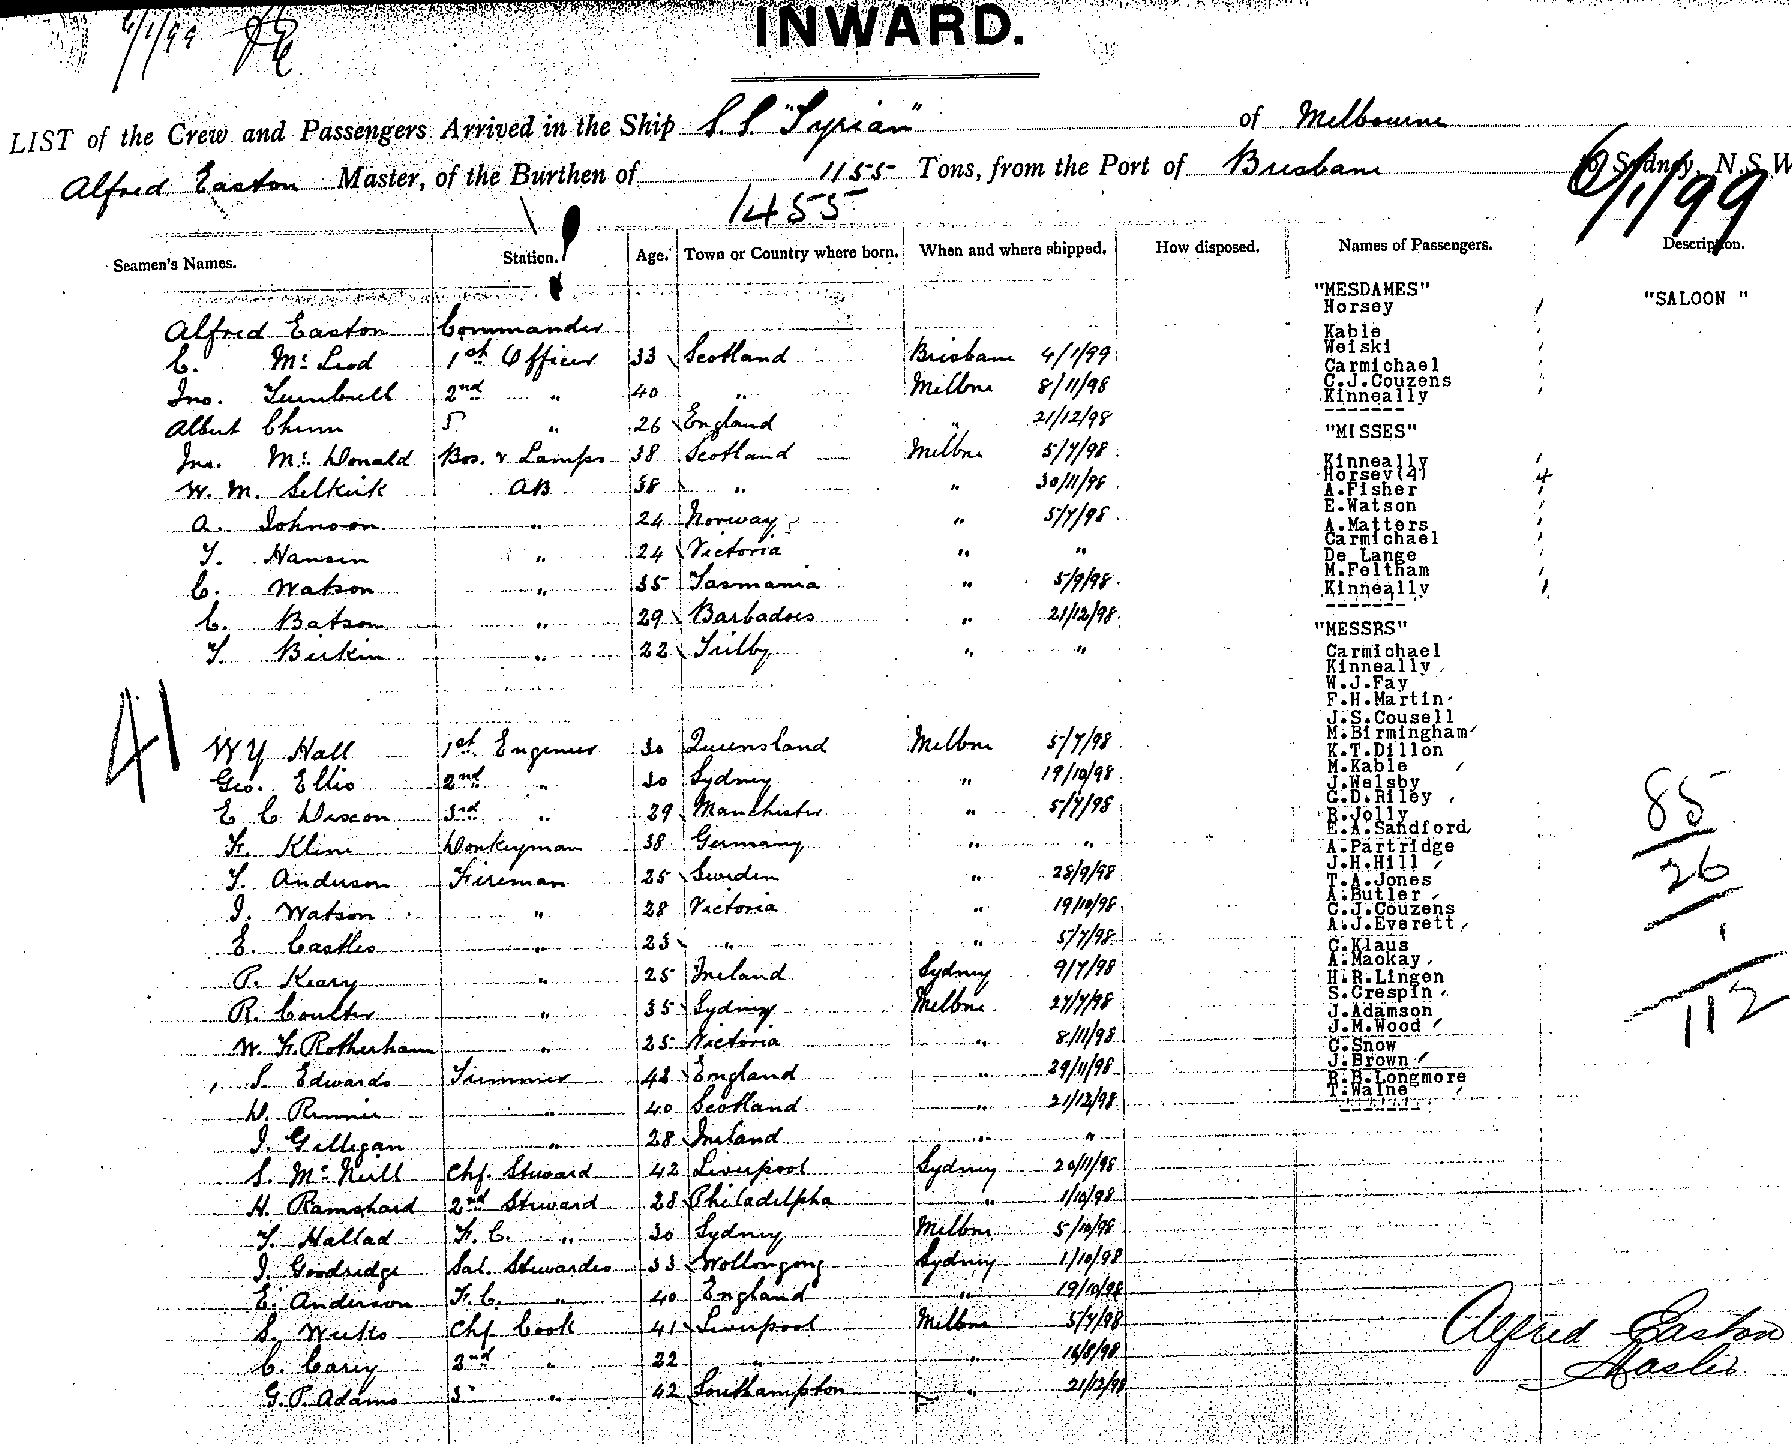 6/1/99
INWARD.
LIST of the Crew and Passengers Arrived in the Ship S.S. "Syrian" of Melbourne
Alfred Easton Master, of the Burthen of 1155 Tons, from the Port of Brisbane to Sydney, N.S.W
1455
6/1/99
Seamen's Names. Station. Age. Town or Country where born. When and where shipped. How disposed. Names of Passengers. Description.
Alfred Easton Commander
C. McLeod 1st Officer 33 Scotland Brisbane 4/1/99
Jno. Turnbull 2nd " 40 " Melbne 8/11/98
Albert Chinn 3 " 26 England " 21/12/98
Jno. McDonald Bos. & Lamps 38 Scotland Melbne 5/7/98
W. M. Selkirk AB 38 " " 30/11/98
A. Johnson " 24 Norway " 5/7/98
T. Hansen " 24 Victoria " "
C. Watson " 35 Tasmania " 5/9/98
C. Batson " 29 Barbadoes " 21/12/98
T. Birkin " 22 " "
41
W Y Hall 1st Engineer 30 Queensland Melbne 5/7/98
Geo. Ellis 2nd " 30 Sydney " 19/10/98
E C Dixon 3rd " 29 Manchester " 5/7/98
F. Kline Donkeyman 38 Germany " "
T. Anderson Fireman 25 Sweden " 28/9/98
J. Watson " 28 Victoria " 19/10/98
E. Castles " 23 " " 5/7/98
P. Keary " 25 Ireland Sydney 9/7/98
R. Coulter " 35 Sydney Melbne 27/7/98
W. F. Rotherham " 25 Victoria " 8/11/98
S. Edwards Trimmer 42 England " 29/11/98
D. Rennie " 40 Scotland " 21/12/98
J. Gilligan " 28 Ireland " "
S. McNeill Chf. Steward 42 Liverpool Sydney 20/11/98
H. Ramshard 2nd Steward 28 Philadelpha " 1/10/98
T. Hallad F.C. " 30 Sydney Melbne 5/10/98
J. Goodridge Sal. Stewardes 33 Wollongong Sydney 1/10/98
E. Anderson F.C. " 40 England " 19/10/98
S. Weeks Chf Cook 41 Liverpool Melbne 5/7/98
C. Carey 2nd " 22 " " 16/8/98
G. P. Adams 3 " 42 Southampton " 21/12/98
"MESDAMES"
"SALOON "
Horsey
Kable
Weiski
Carmichael
C.J.Couzens
Kinneally
"MISSES"
Kinneally
Horsey(4) 4
A.Fisher
E.Watson
A.Matters
Carmichael
De Lange
M.Feltham
Kinneally
"MESSRS"
Carmichael
Kinneally
W.J.Fay
F.H.Martin
J.S.Cousell
M.Birmingham
K.T.Dillon
M.Kable
J.Welsby
C.D.Riley
R.Jolly
E.A.Sandford
A.Partridge
J.H.Hill
T.A.Jones
A.Butler
C.J.Couzens
A.J.Everett
C.Klaus
A.Mackay
H.R.Lingen
S.Crespin
J.Adamson
J.M.Wood
C.Snow
J.Brown
R.B.Longmore
T.Waine
85
26
1
112
Alfred Easton
Master